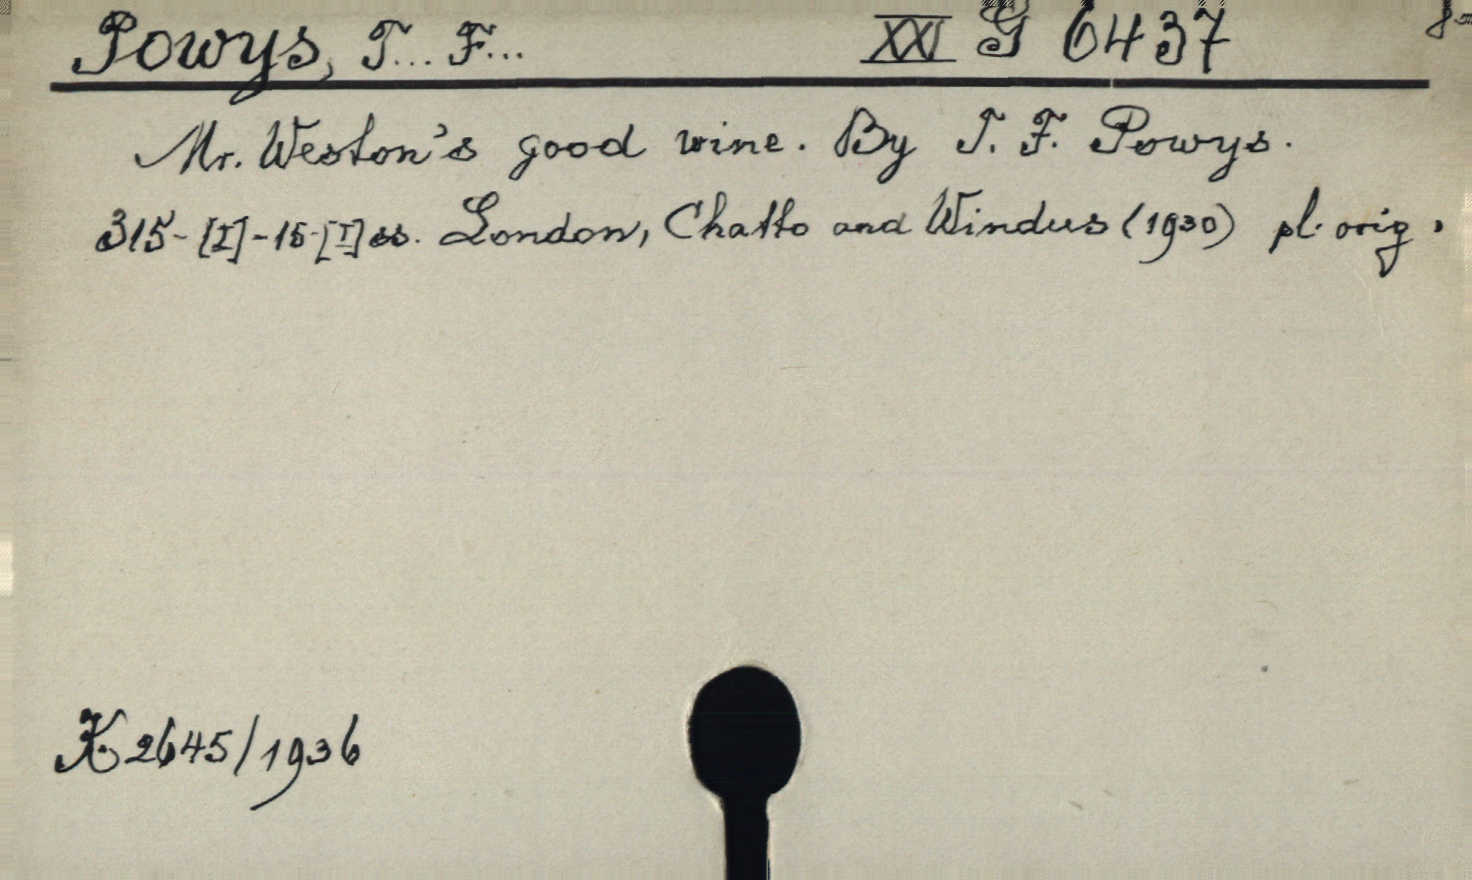 Powys, T... F... XXI G 6437 8=
Mr. Weston's good wine. By T. F. Powys.
315-[I]-15-[I] ss. London, Chatto and Windus (1930) pl. orig.
K 2645/1936